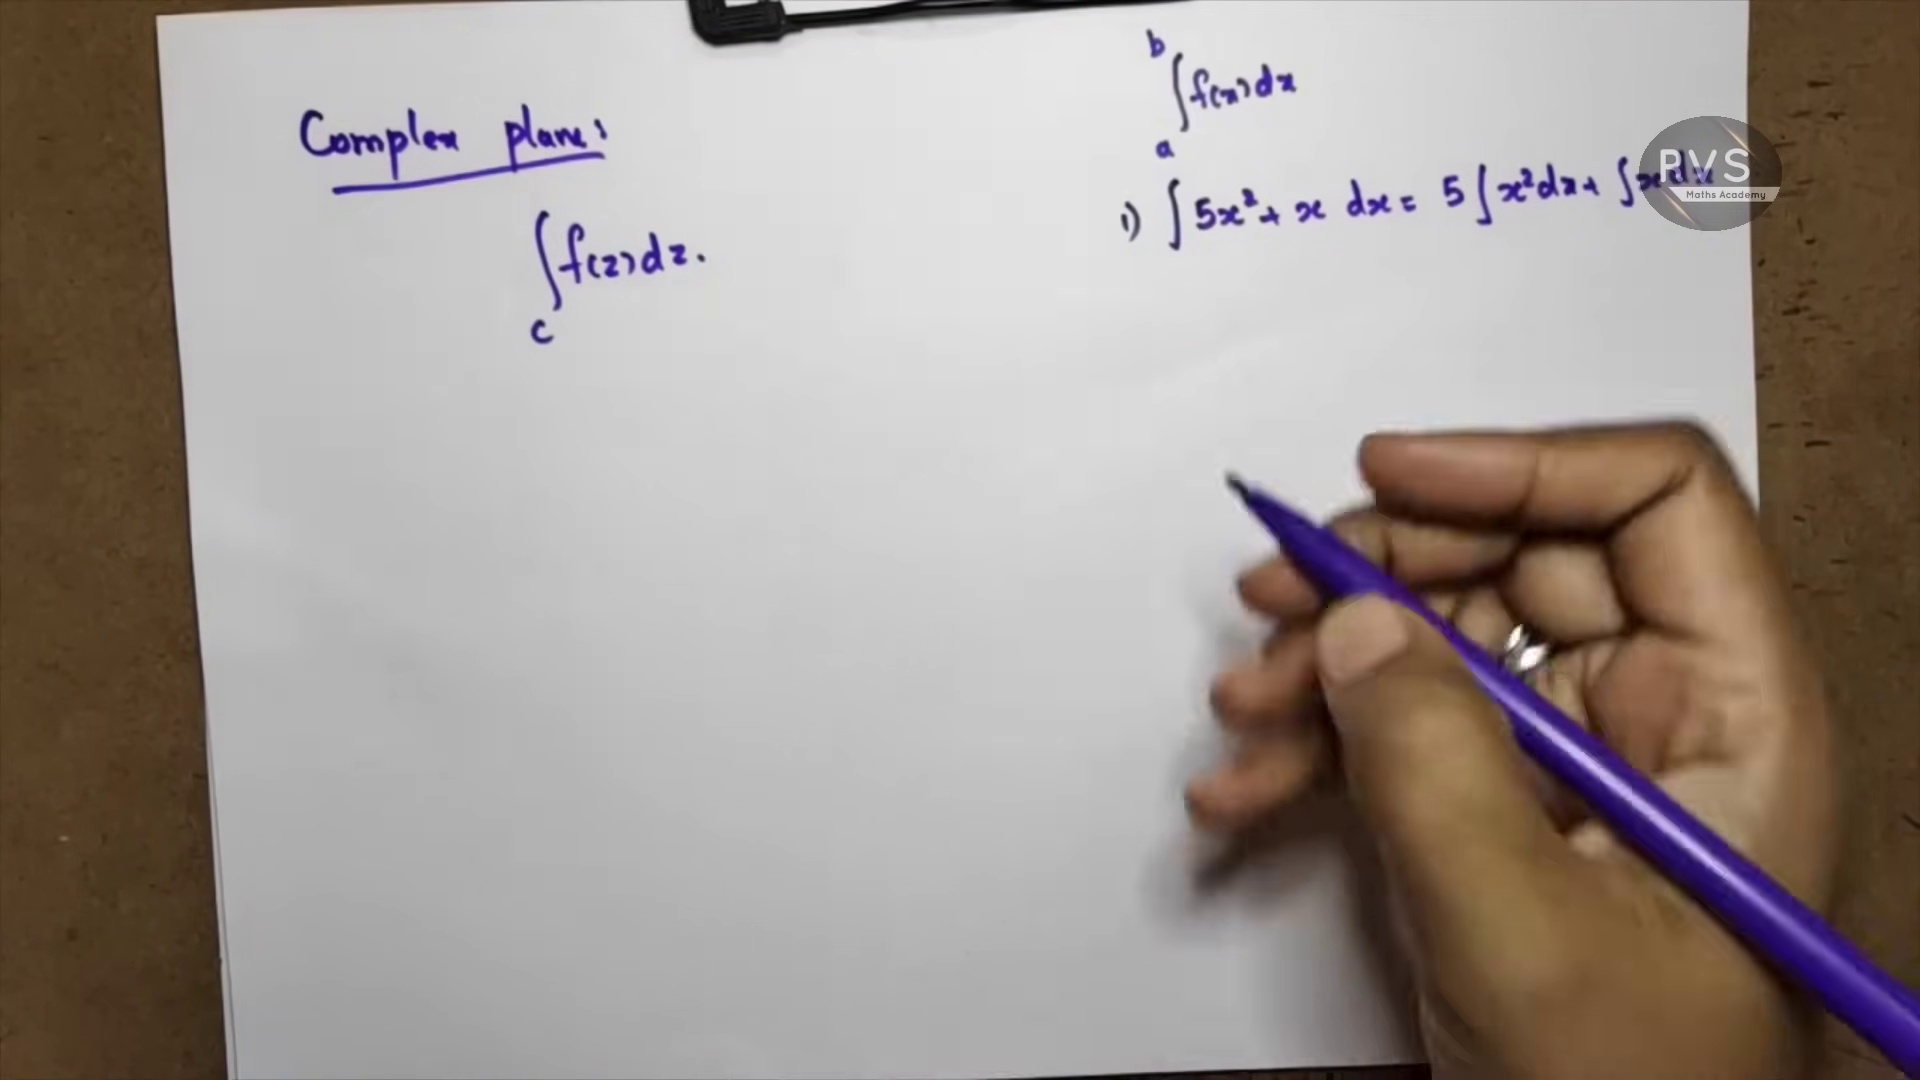 Complex plane:
∫_C f(z) dz.
∫_a^b f(x) dx
1) ∫ 5x² + x dx = 5 ∫ x² dx + ∫ x dx
RVS
Maths Academy